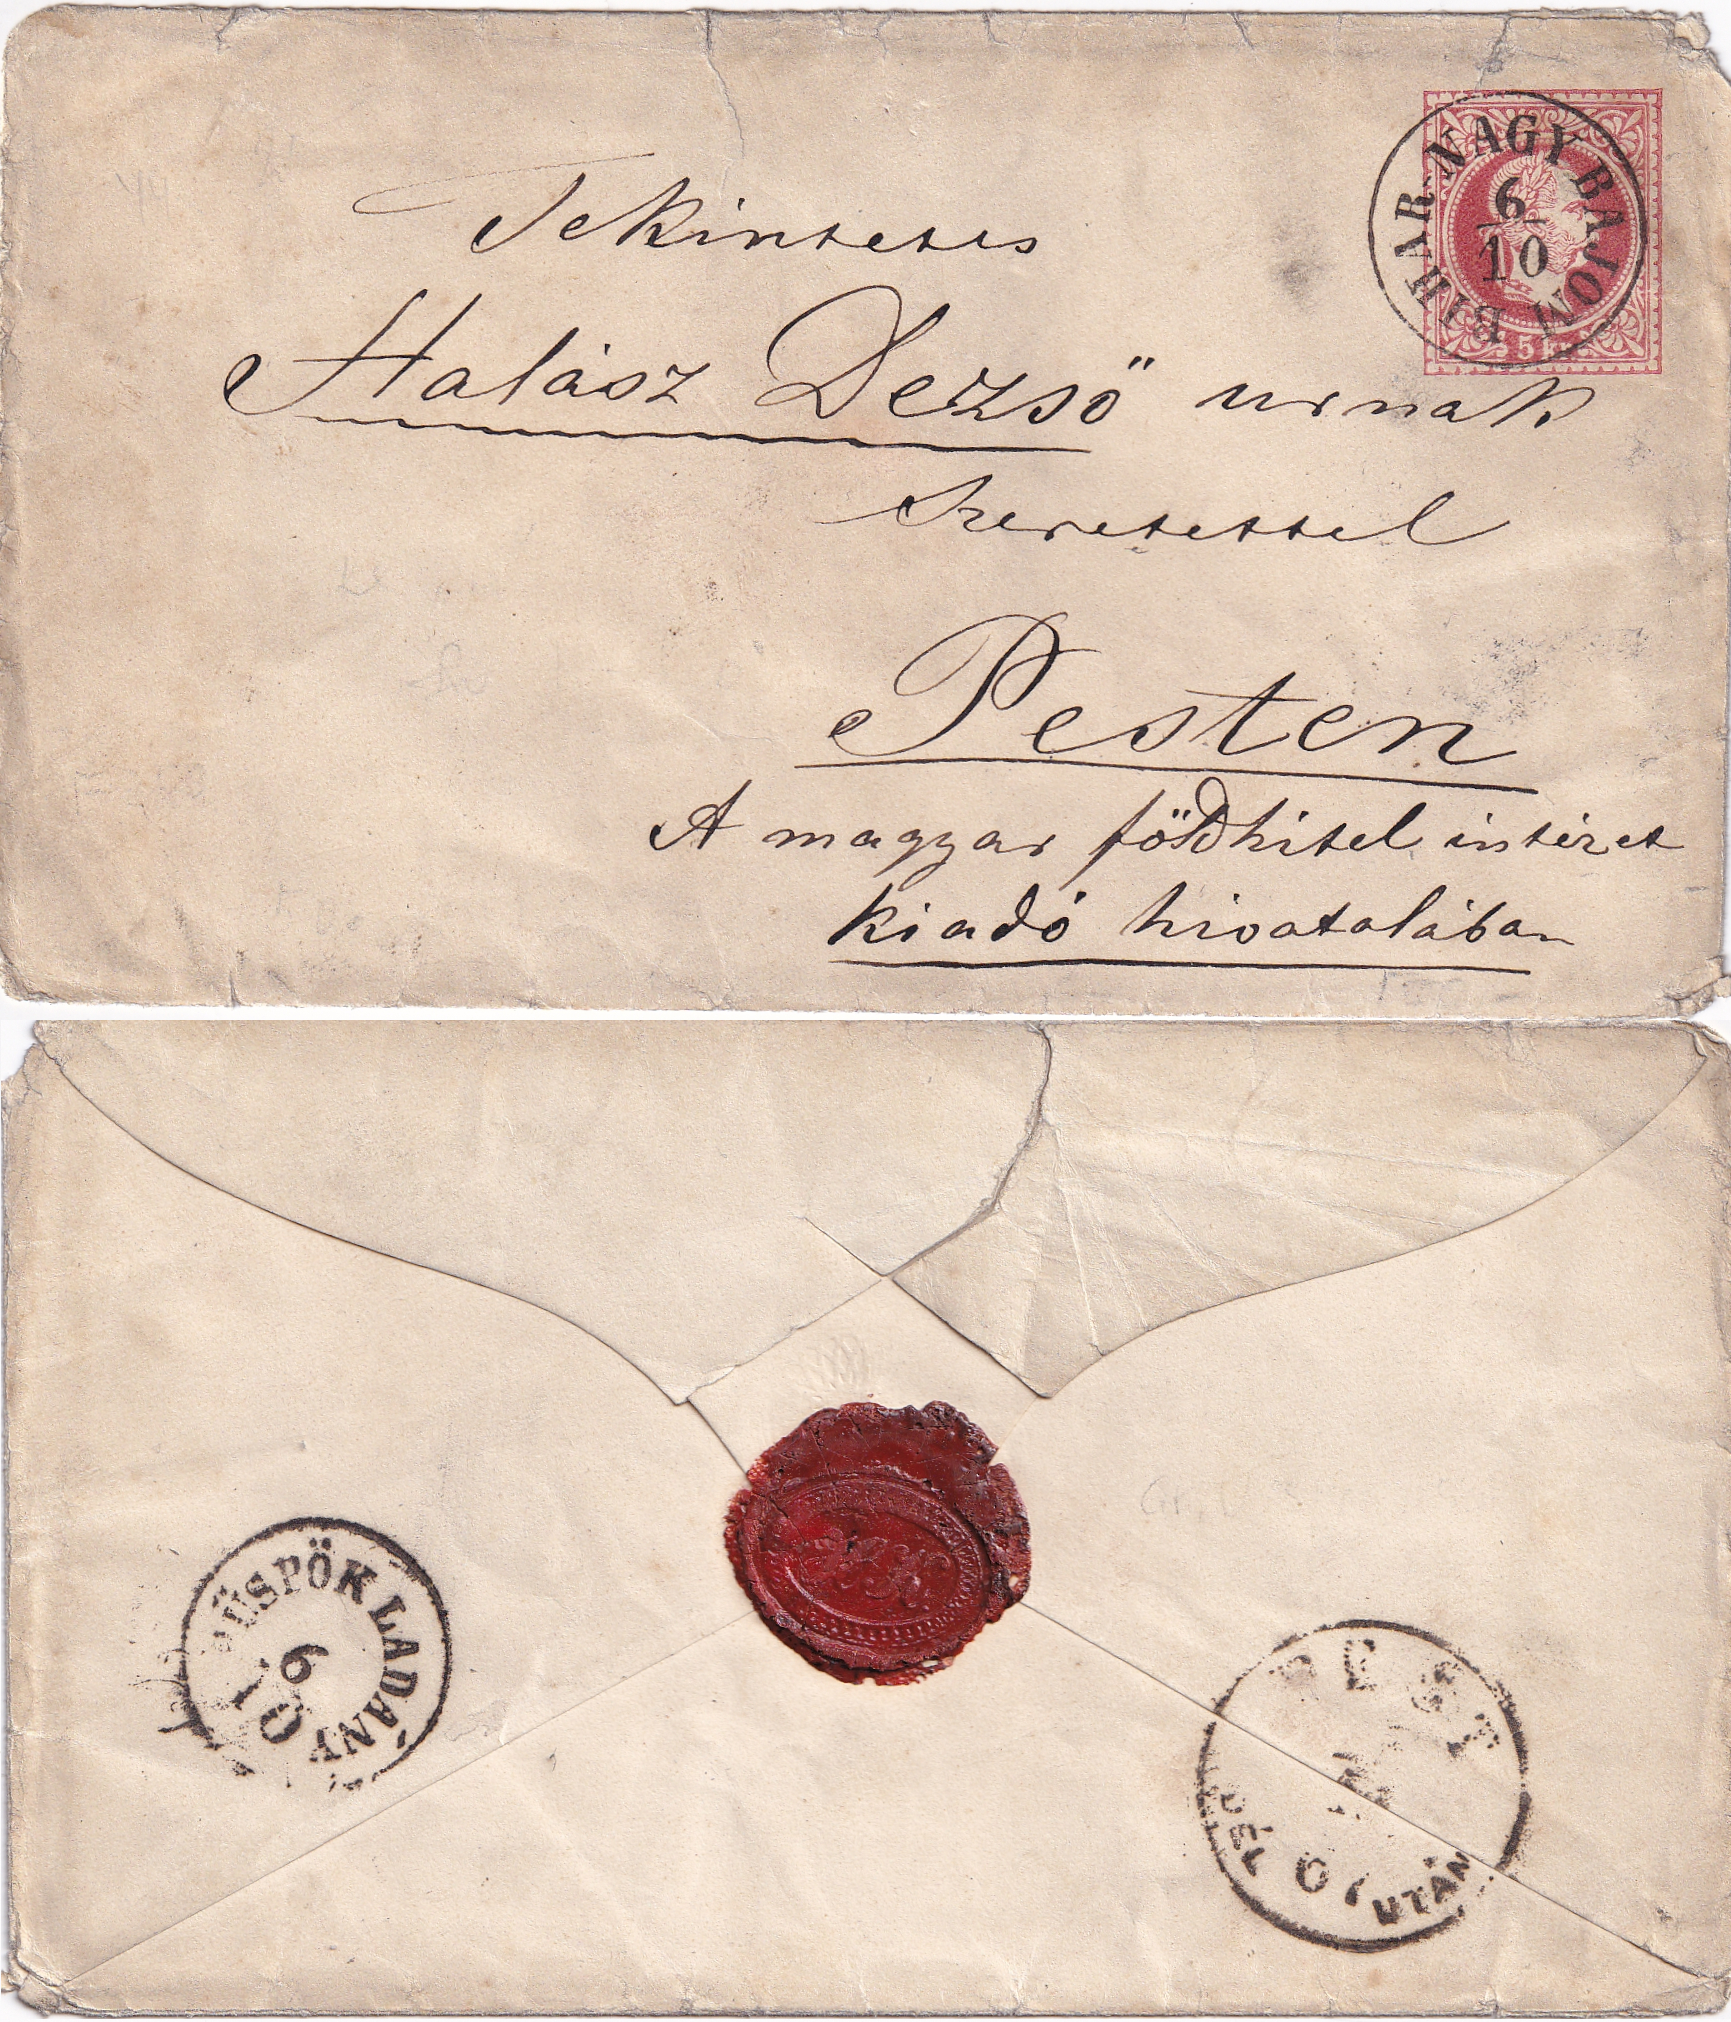 Tekintetes
Halász Dezső urnak
Szeretettel
Pesten
A magyar földhitel intézet
kiadó hivatalában
BIHAR-NAGY BAJOM
6
10
5 kr.
PÜSPÖK LADÁNY
6
10
PEST
DÉL UTÁN